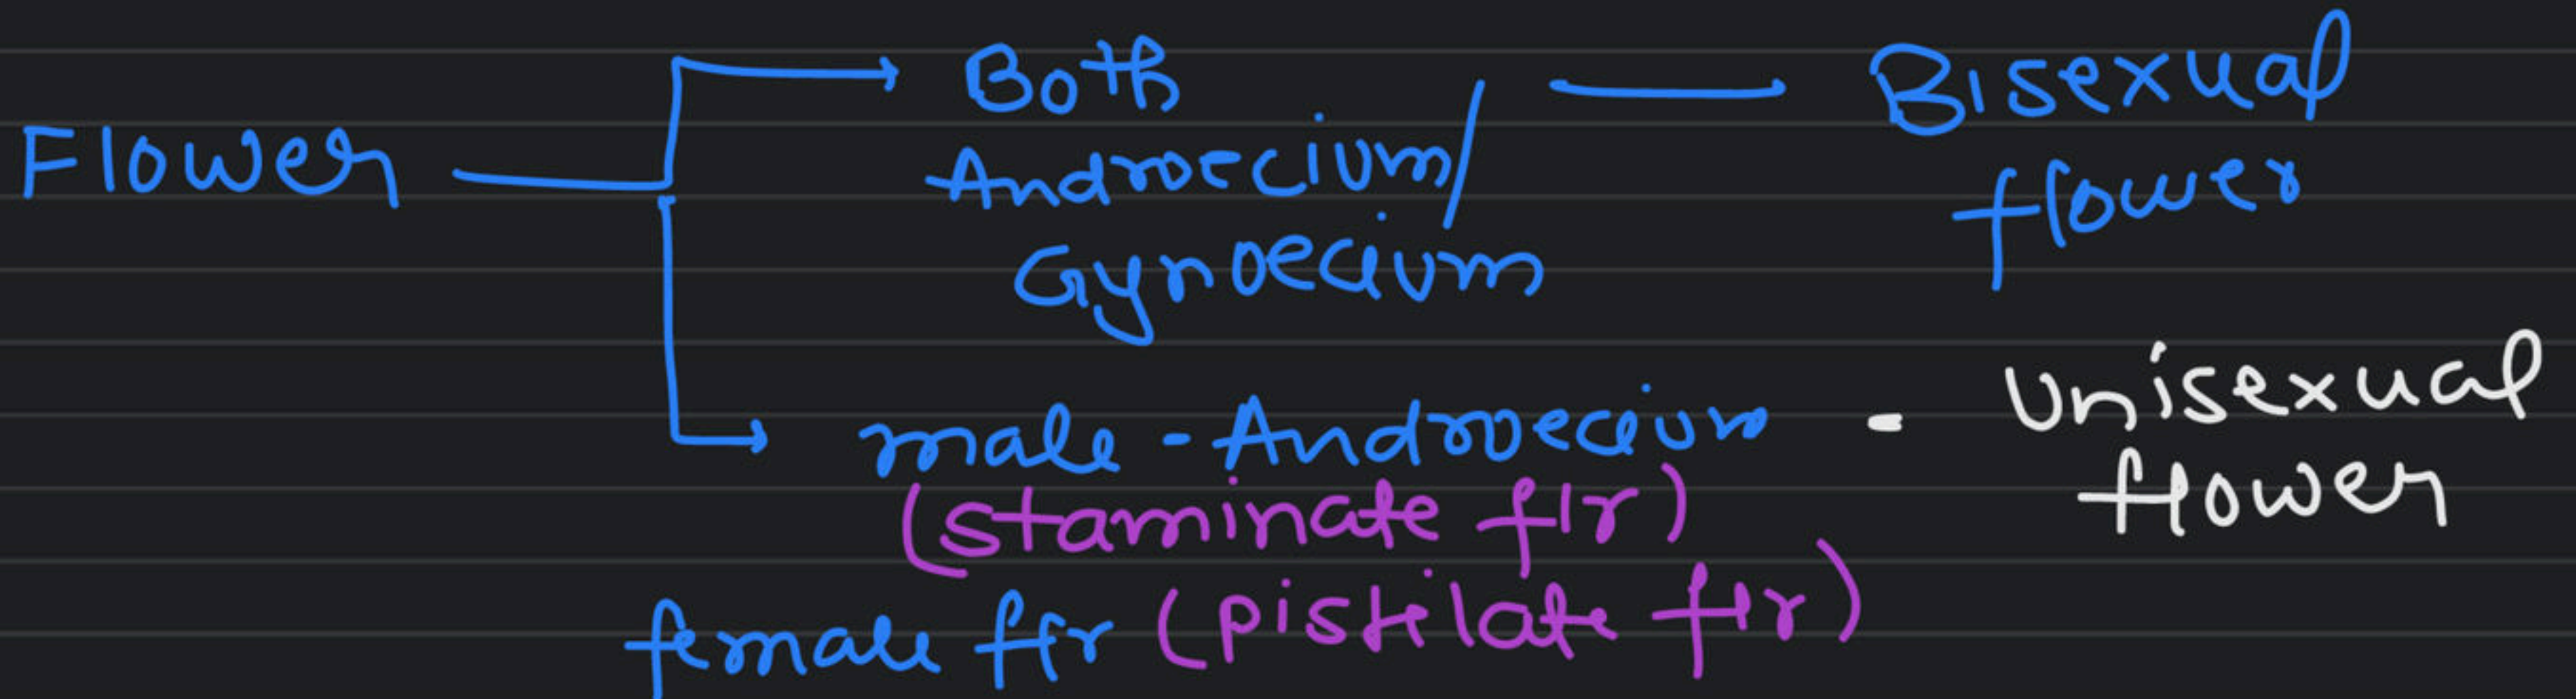 Flower
Both
Androecium/
Gynoecium
Bisexual
flower
male - Androecium - Unisexual
flower
(staminate flr)
female flr (pistilate flr)